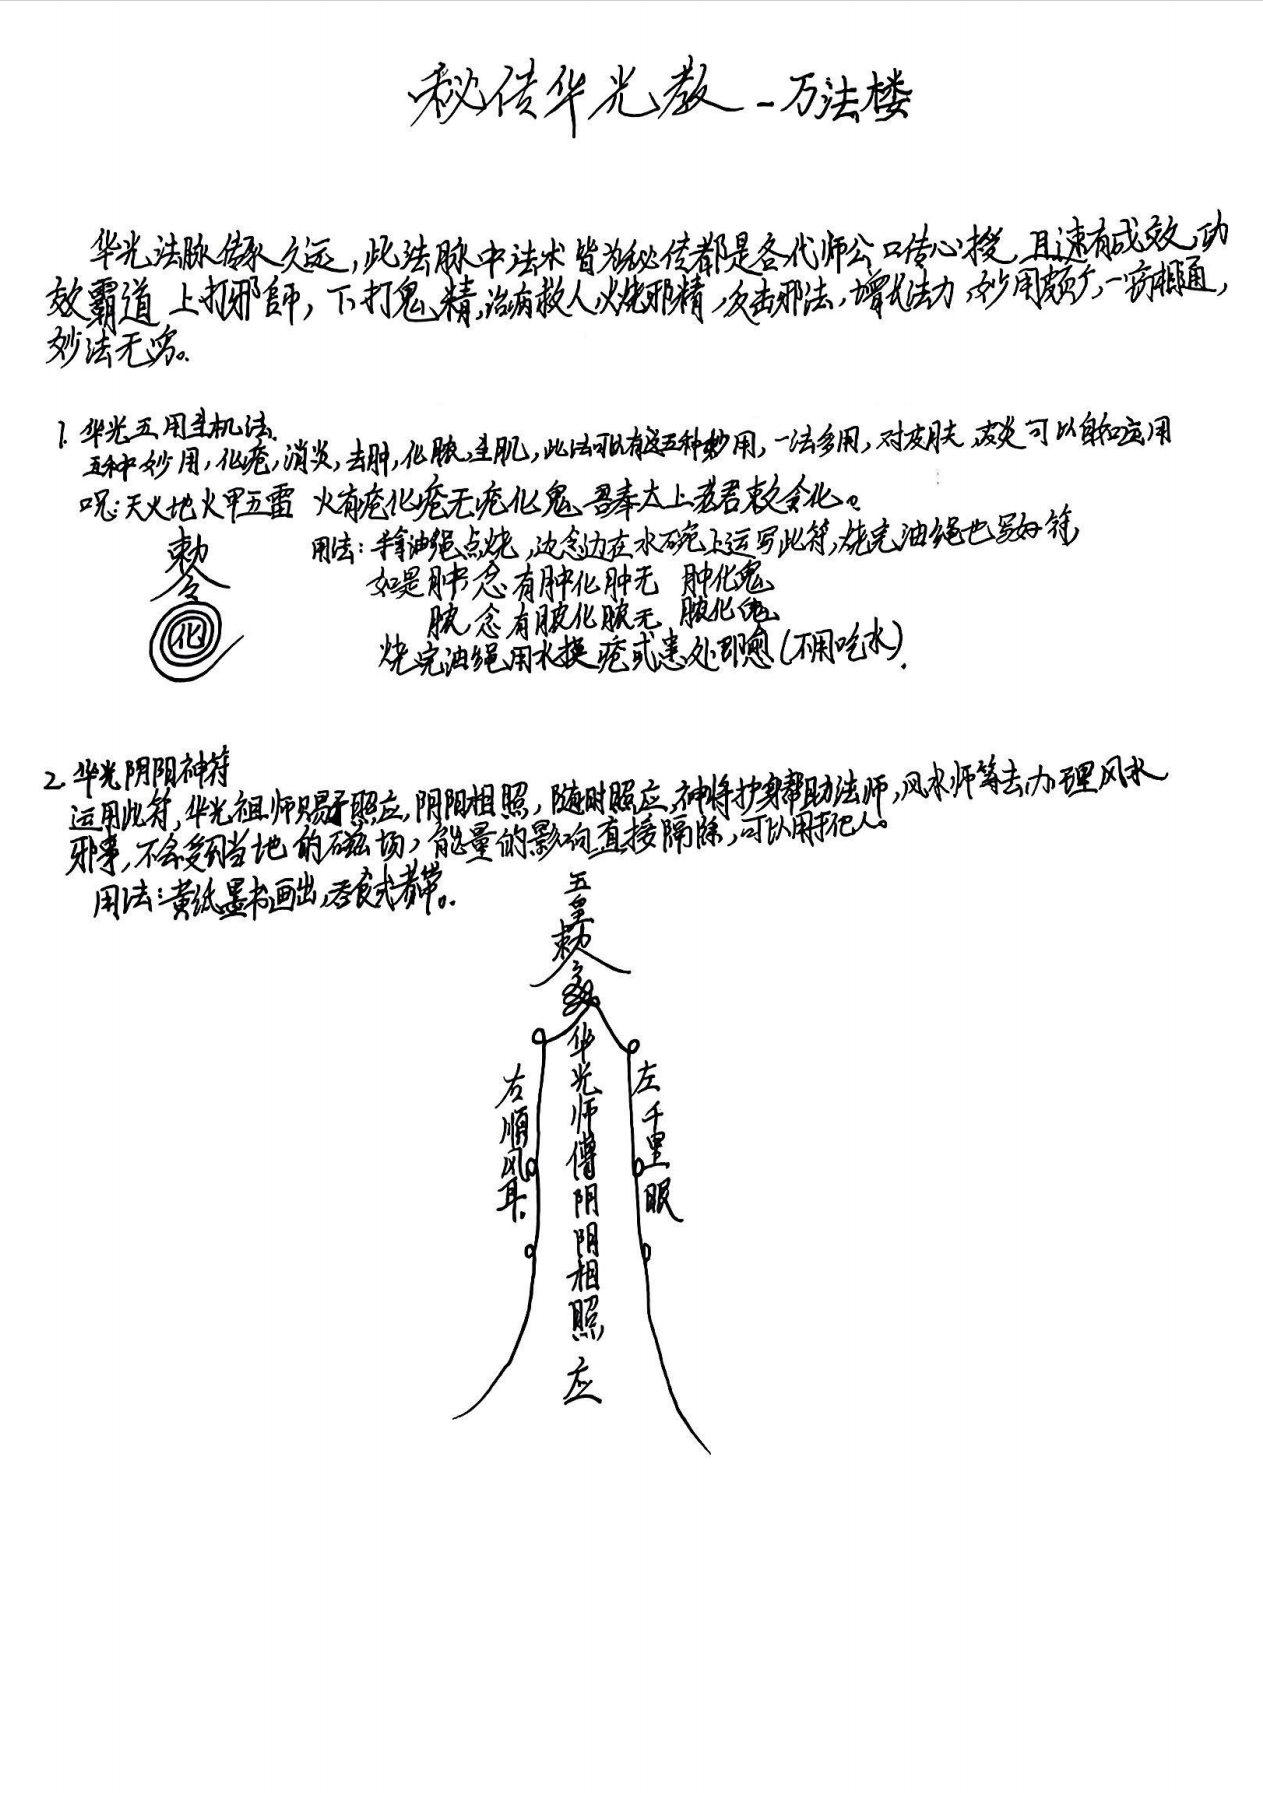 秘传华光教-万法楼
华光法脉传承久远,此法脉中法术皆为秘传都是各代师公口传心授,且速有成效,功
效霸道 上打邪師,下打鬼精,治病救人,火烧邪精,反击邪法,增长法力,妙用颇广,一窍相通,
妙法无穷。
1.华光五用生机法.
五种妙用,化疮,消炎,去肿,化脓,生肌,此法可以有这五种妙用,一法多用,对皮肤 皮炎可以自如应用
咒:天火地火甲五雷 火有疮化疮无疮化鬼 吾奉太上老君敕令化。
敕令
化
用法:拿油绳点烧,边念边在水碗上运写此符,烧完油绳也写好符,
如是肿 念有肿化肿无 肿化鬼
脓 念有脓化脓无 脓化鬼
烧完油绳用水搽疮或患处即愈(不用吃水).
2.华光阴阳神符
运用此符,华光祖师赐予照应,阴阳相照,随时照应,神将护身帮助法师,风水师等去办理风水
邪事,不会受到当地的磁场,能量的影响直接隔除,可以用于他人。
用法:黄纸墨书画出,吞食或者带。
五皇敕令
华光师傅阴阴相照应
右顺风耳.
左千里眼